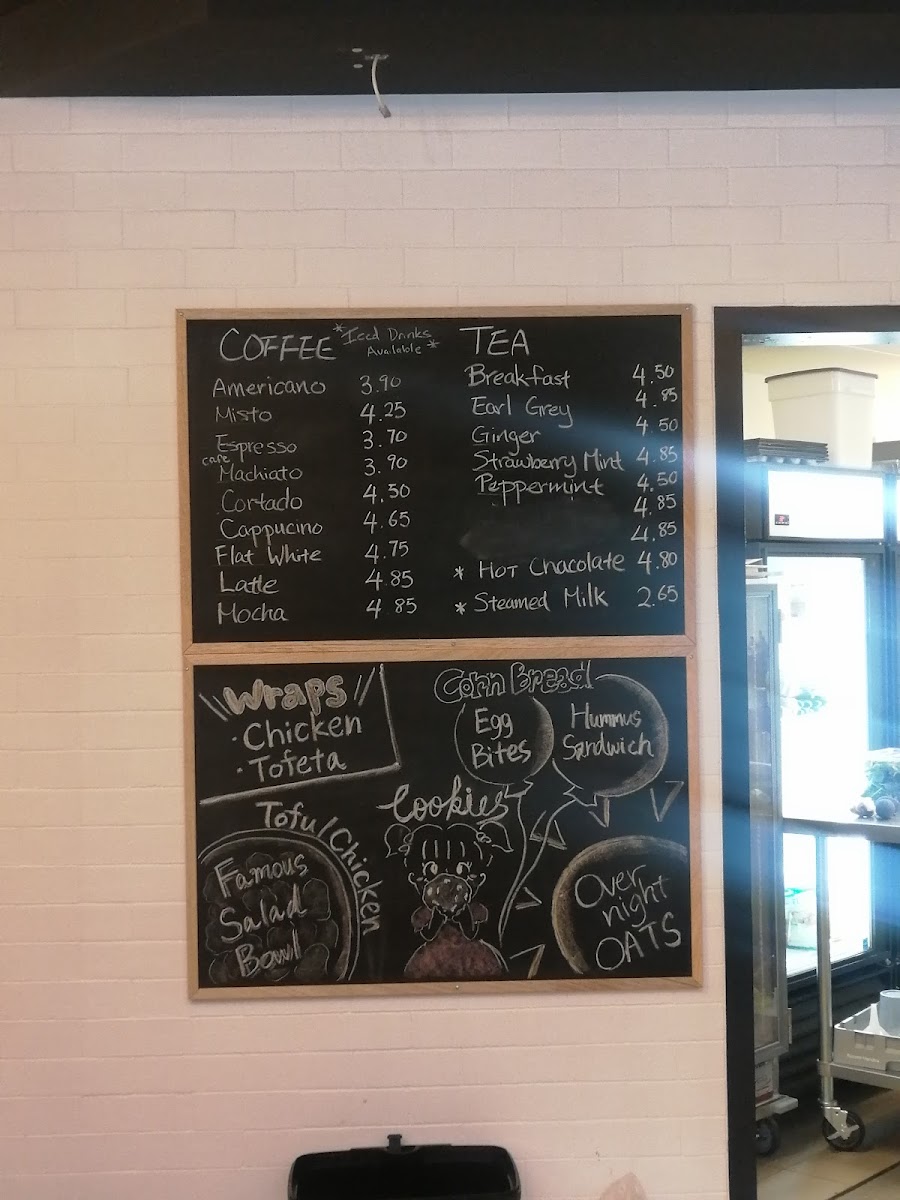 COFFEE
*Iced Drinks
Available*
Americano 3.90
Misto 4.25
Espresso 3.70
cafe
Machiato 3.90
Cortado 4.50
Cappucino 4.65
Flat White 4.75
Latte 4.85
Mocha 4.85
TEA
Breakfast 4.50
Earl Grey 4.85
Ginger 4.50
Strawberry Mint 4.85
Peppermint 4.50
4.85
4.85
* HOT Chacolate 4.80
* Steamed Milk 2.65
Wraps
· Chicken
· Tofeta
Corn Bread
Egg
Bites
Hummus
Sandwich
Cookies
Tofu/Chicken
Famous
Salad
Bowl
Over
night
OATS